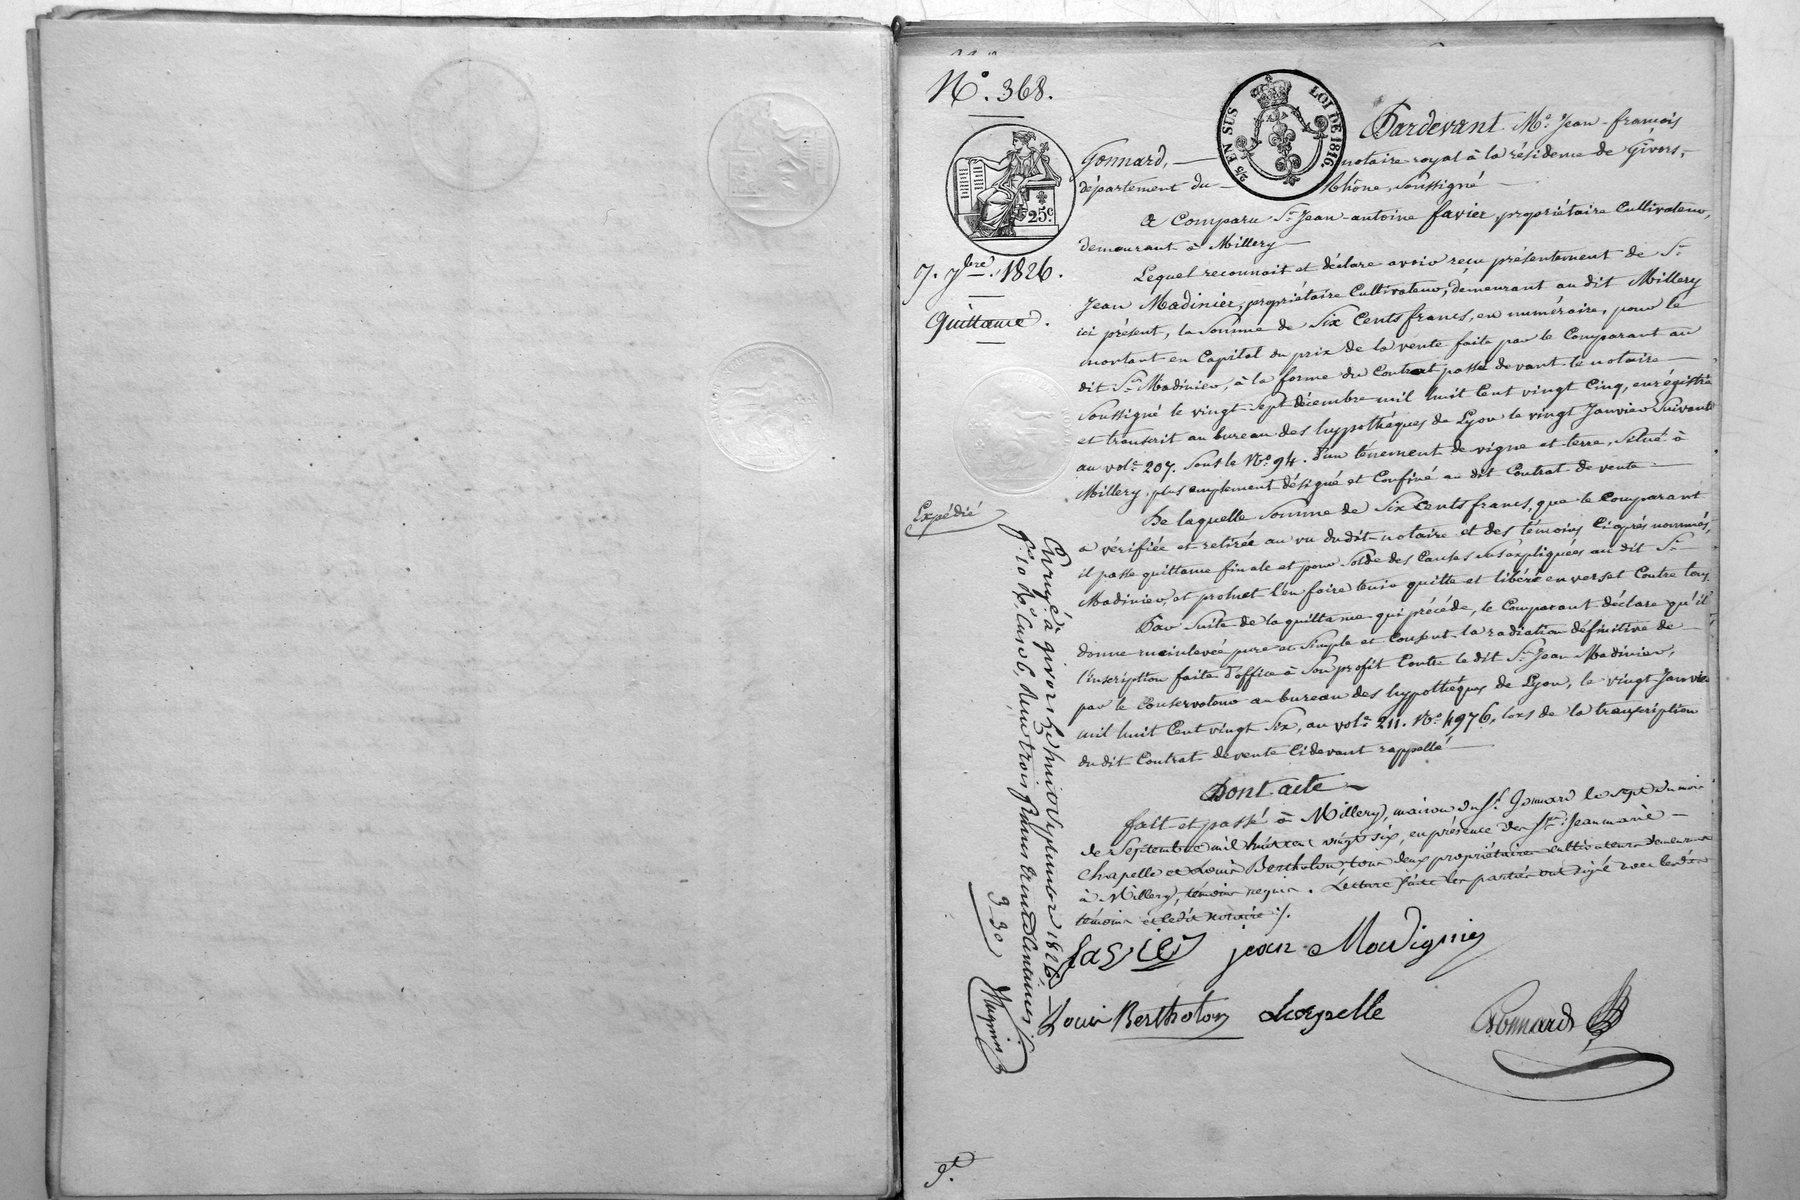 N.º 368.
25 EN SUS
LOI DE 1816.
25.c
7. 7bre. 1826.
Quittance.
Expédié
Pardevant Me. Jean-françois
Gonnard, notaire royal à la résidence de Givors,
département du Rhône, soussigné
A Comparu Sr. Jean-antoine favier, propriétaire Cultivateur,
demeurant à Millery
Lequel reconnait et déclare avoir reçu présentement de Sr.
Jean Madinier, propriétaire Cultivateur, demeurant au dit Millery
ici présent, la Somme de Six Cents francs, en numéraire, pour le
montant en Capital du prix de la vente faite par le Comparant au
dit Sr. Madinier, à la forme du Contrat passé devant le notaire
soussigné le vingt-sept décembre mil huit Cent vingt Cinq, enrégistré
et transcrit au bureau des hypothèques de Lyon le vingt Janvier Suivant
au vole. 207. sous le No. 94. d'un ténement de vigne et terre, situé à
Millery, plus amplement désigné et Confiné au dit Contrat de vente
De laquelle Somme de Six Cents francs, que le Comparant
a vérifiée et retirée au vu dudit notaire et des témoins Ciaprès nommés,
il passe quittance finale et pour Solde des Causes susexpliquées au dit Sr.
Madinier, et promet l'en faire tenir quitte et libéré envers et Contre tous
Par Suite de la quittance qui précède, le Comparant déclare qu'il
donne mainlevée pure et Simple et Consent la radiation définitive de
l'inscription faite d'office à Son profit Contre le dit Sr. Jean Madinier,
par le Conservateur au bureau des hypothèques de Lyon, le vingt Janvier
mil huit Cent vingt Six, au vole. 211. No. 4976, lors de la transcription
du dit Contrat de vente Cidevant rappellé
Dont acte
fait et passé à Millery, maison du Sr. Gonnard le sept du mois
de Septembre mil huit cent vingt six, en présence des Srs. Jean marie
Chapelle et Louis Bertholon, tous deux propriétaires cultivateurs demeurant
à Millery, témoins requis. Lecture faite les parties ont signé avec lesdits
témoins et ledit notaire ./.
favier jean Madignier
Louis Bertholon Chapelle
Gonnard
Enregé. à givors le huit Septembre 1826,
fo. 10 Ro. Case 6, Reçu trois francs trente Centimes
3-30